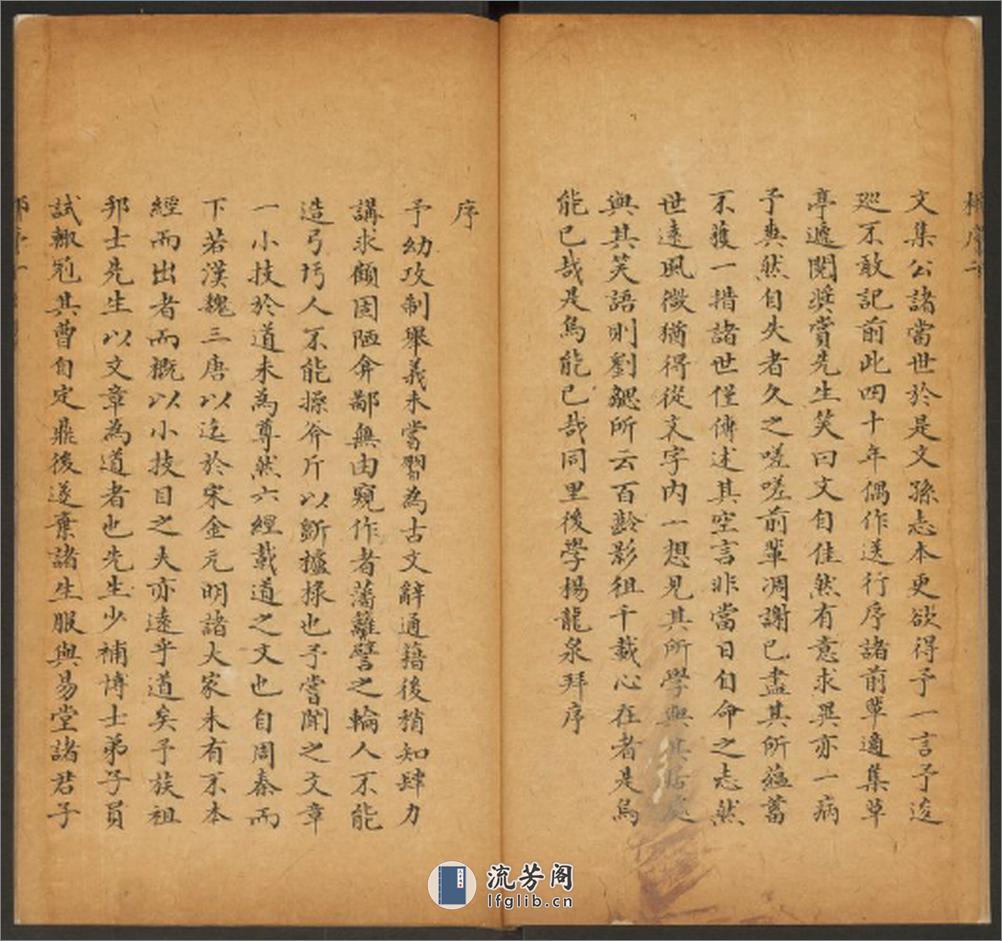 楊序二
文集公諸當世於是文孫志本更欲得予一言予逡
巡不敢記前此四十年偶作送行序諸前輩適集草
亭遞閱奬賞先生笑曰文自佳然有意求異亦一病
予爽然自失者久之嗟嗟前輩凋謝已盡其所蘊蓄
不獲一措諸世僅傳述其空言非當日自命之志然
世遠風微猶得從文字内一想見其所學與其居處
與其笑語則劉勰所云百齡影徂千載心在者是烏
能已哉是烏能已哉同里後學楊龍泉拜序
序
予幼攻制舉義未嘗習為古文辭通籍後稍知肆力
講求顧固陋弇鄙無由窺作者藩籬譬之輪人不能
造弓圬人不能操斧斤以斵櫨椽也予嘗聞之文章
一小技於道未為尊然六經載道之文也自周秦而
下若漢魏三唐以迄於宋金元明諸大家未有不本
經而出者而概以小技目之夫亦遠乎道矣予族祖
邦士先生以文章為道者也先生少補博士弟子員
試輙冠其曹自定鼎後遂棄諸生服與易堂諸君子
流芳阁
lfglib.cn